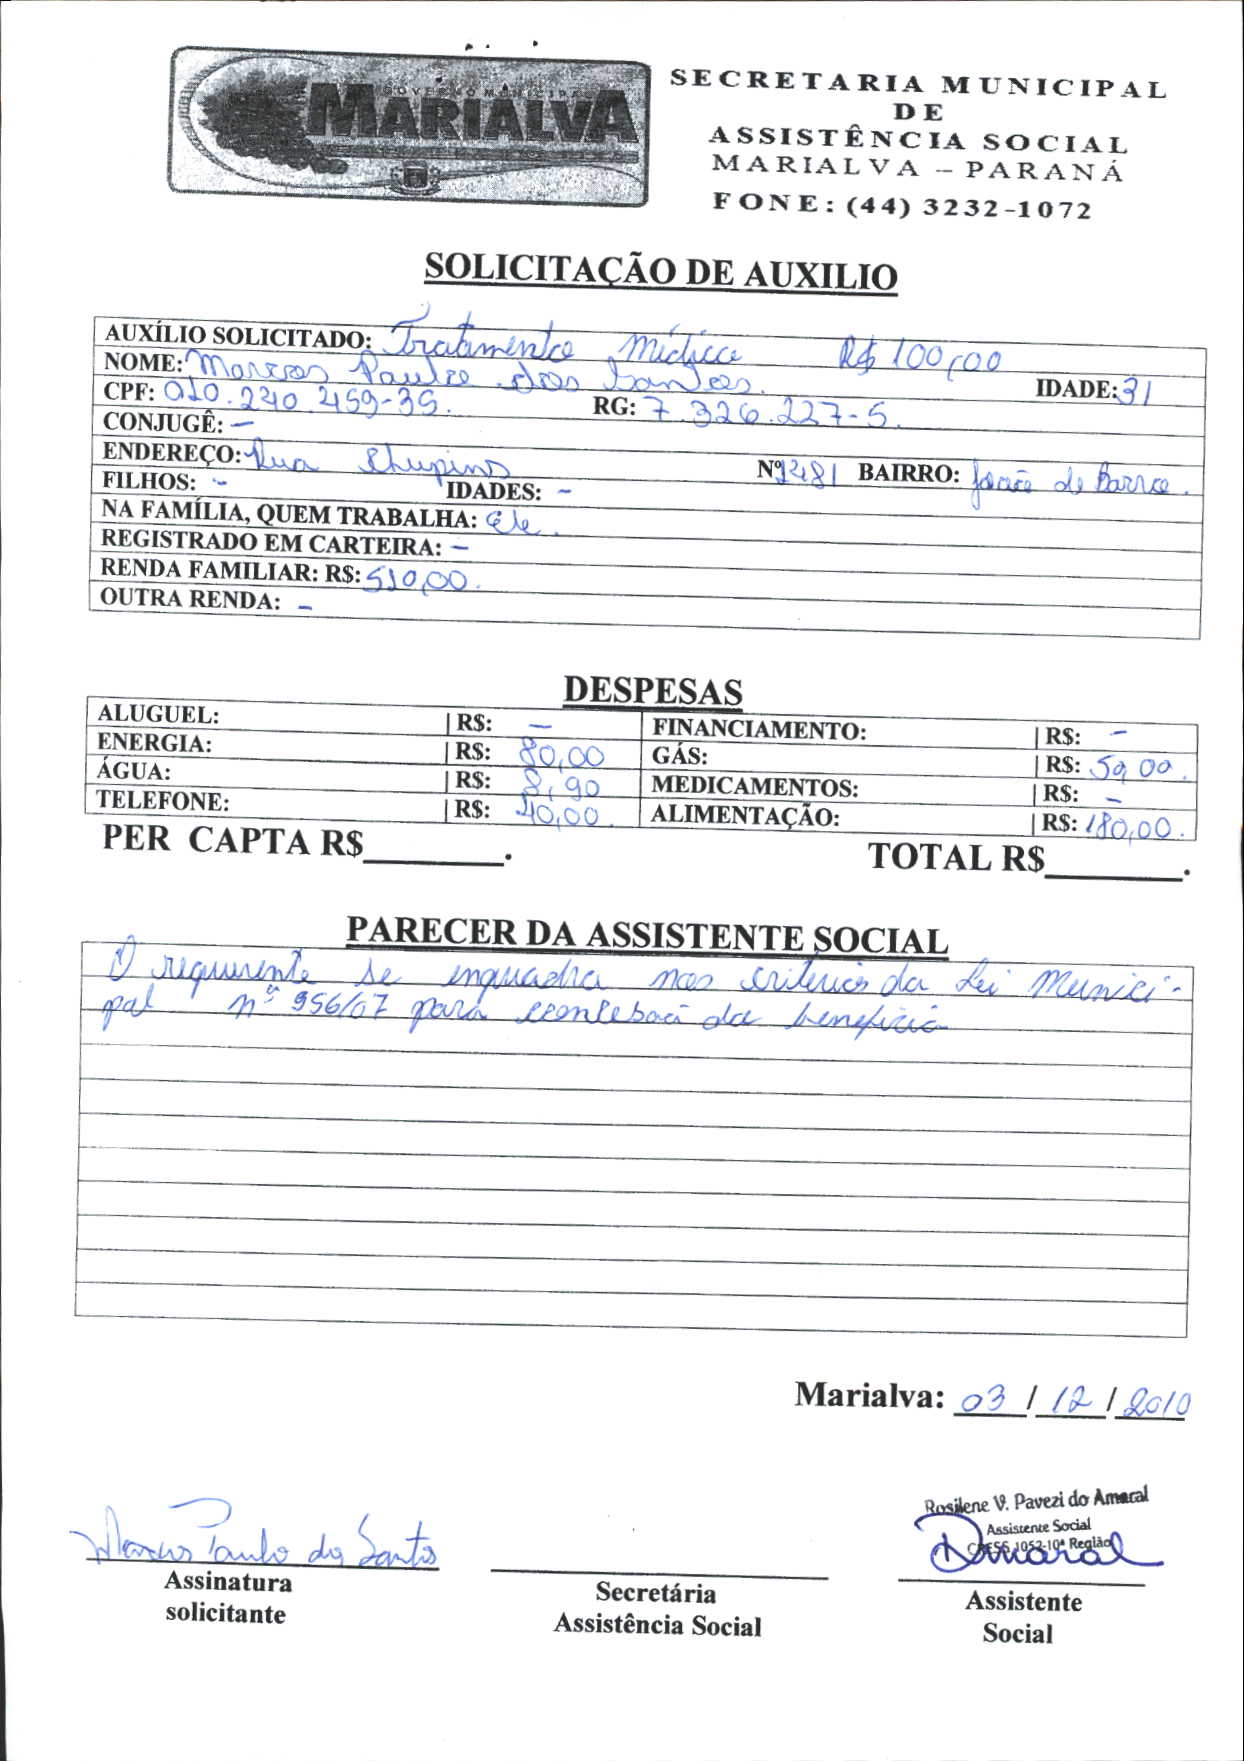 GOVERNO MUNICIPAL
MARIALVA
SECRETARIA MUNICIPAL
DE
ASSISTÊNCIA SOCIAL
MARIALVA – PARANÁ
FONE: (44) 3232-1072
SOLICITAÇÃO DE AUXILIO
AUXÍLIO SOLICITADO: Tratamento Médico R$ 100,00
NOME: Marcos Paulo dos Santos. IDADE: 31
CPF: 010.240.459-39. RG: 7.326.227-5.
CONJUGÊ: –
ENDEREÇO: Rua Chupins Nº 1481 BAIRRO: João de Barro.
FILHOS: – IDADES: –
NA FAMÍLIA, QUEM TRABALHA: Ele.
REGISTRADO EM CARTEIRA: –
RENDA FAMILIAR: R$: 510,00.
OUTRA RENDA: –
DESPESAS
ALUGUEL: | R$: – FINANCIAMENTO: | R$: –
ENERGIA: | R$: 80,00 GÁS: | R$: 59,00.
ÁGUA: | R$: 8,90 MEDICAMENTOS: | R$: –
TELEFONE: | R$: 40,00. ALIMENTAÇÃO: | R$: 180,00.
PER CAPTA R$________. TOTAL R$________.
PARECER DA ASSISTENTE SOCIAL
O requerente se enquadra nos critérios da Lei Munici-
pal nº 956/07 para concesão do beneficio
Marialva: 03 / 12 / 2010
Rosilene V. Pavezi do Amaral
Assistente Social
CRESS 1052-10ª Região
Marcos Paulo dos Santos Damaral
Assinatura
solicitante
Secretária
Assistência Social
Assistente
Social